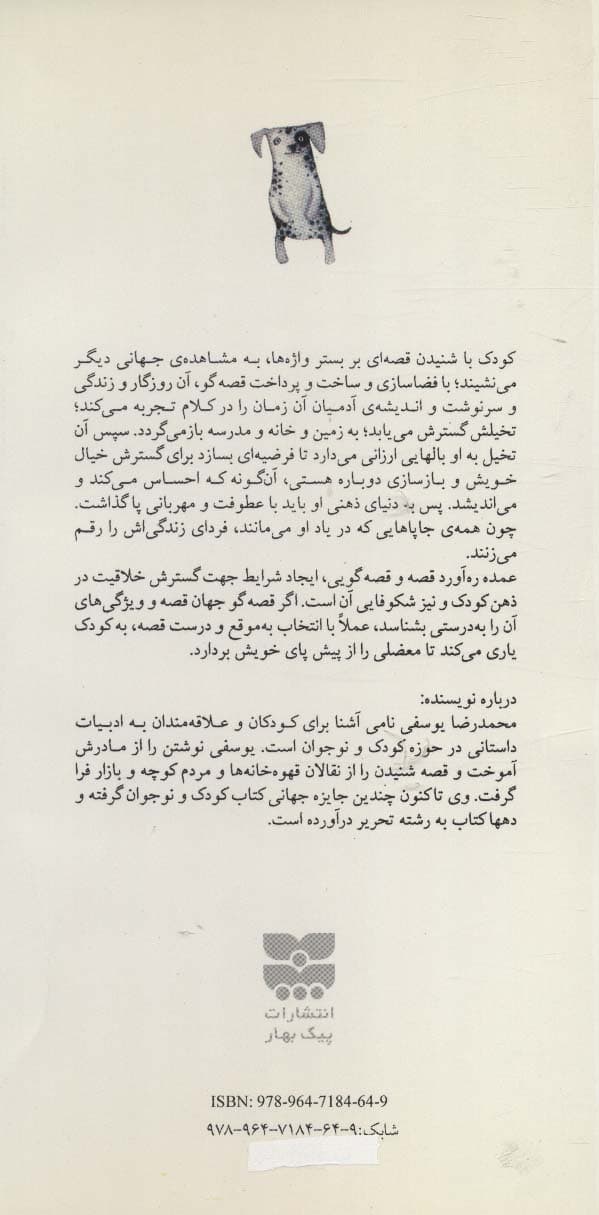 کودک با شنیدن قصه‌ای بر بستر واژه‌ها، به مشاهده‌ی جهانی دیگر
می‌نشیند؛ با فضاسازی و ساخت و پرداخت قصه‌گو، آن روزگار و زندگی
و سرنوشت و اندیشه‌ی آدمیان آن زمان را در کلام تجربه می‌کند؛
تخیلش گسترش می‌یابد؛ به زمین و خانه و مدرسه بازمی‌گردد. سپس آن
تخیل به او بالهایی ارزانی می‌دارد تا فرضیه‌ای بسازد برای گسترش خیال
خویش و بازسازی دوباره هستی، آن‌گونه که احساس می‌کند و
می‌اندیشد. پس به دنیای ذهنی او باید با عطوفت و مهربانی پا گذاشت.
چون همه‌ی جاپاهایی که در یاد او می‌مانند، فردای زندگی‌اش را رقم
می‌زنند.
عمده ره‌آورد قصه و قصه‌گویی، ایجاد شرایط جهت گسترش خلاقیت در
ذهن کودک و نیز شکوفایی آن است. اگر قصه‌گو جهان قصه و ویژگی‌های
آن را به‌درستی بشناسد، عملاً با انتخاب به‌موقع و درست قصه، به کودک
یاری می‌کند تا معضلی را از پیش پای خویش بردارد.
درباره نویسنده:
محمدرضا یوسفی نامی آشنا برای کودکان و علاقه‌مندان به ادبیات
داستانی در حوزه کودک و نوجوان است. یوسفی نوشتن را از مادرش
آموخت و قصه شنیدن را از نقالان قهوه‌خانه‌ها و مردم کوچه و بازار فرا
گرفت. وی تاکنون چندین جایزه جهانی کتاب کودک و نوجوان گرفته و
دهها کتاب به رشته تحریر درآورده است.
انتشارات
پیک بهار
ISBN: 978-964-7184-64-9
شابک: ۹-۶۴-۷۱۸۴-۹۶۴-۹۷۸